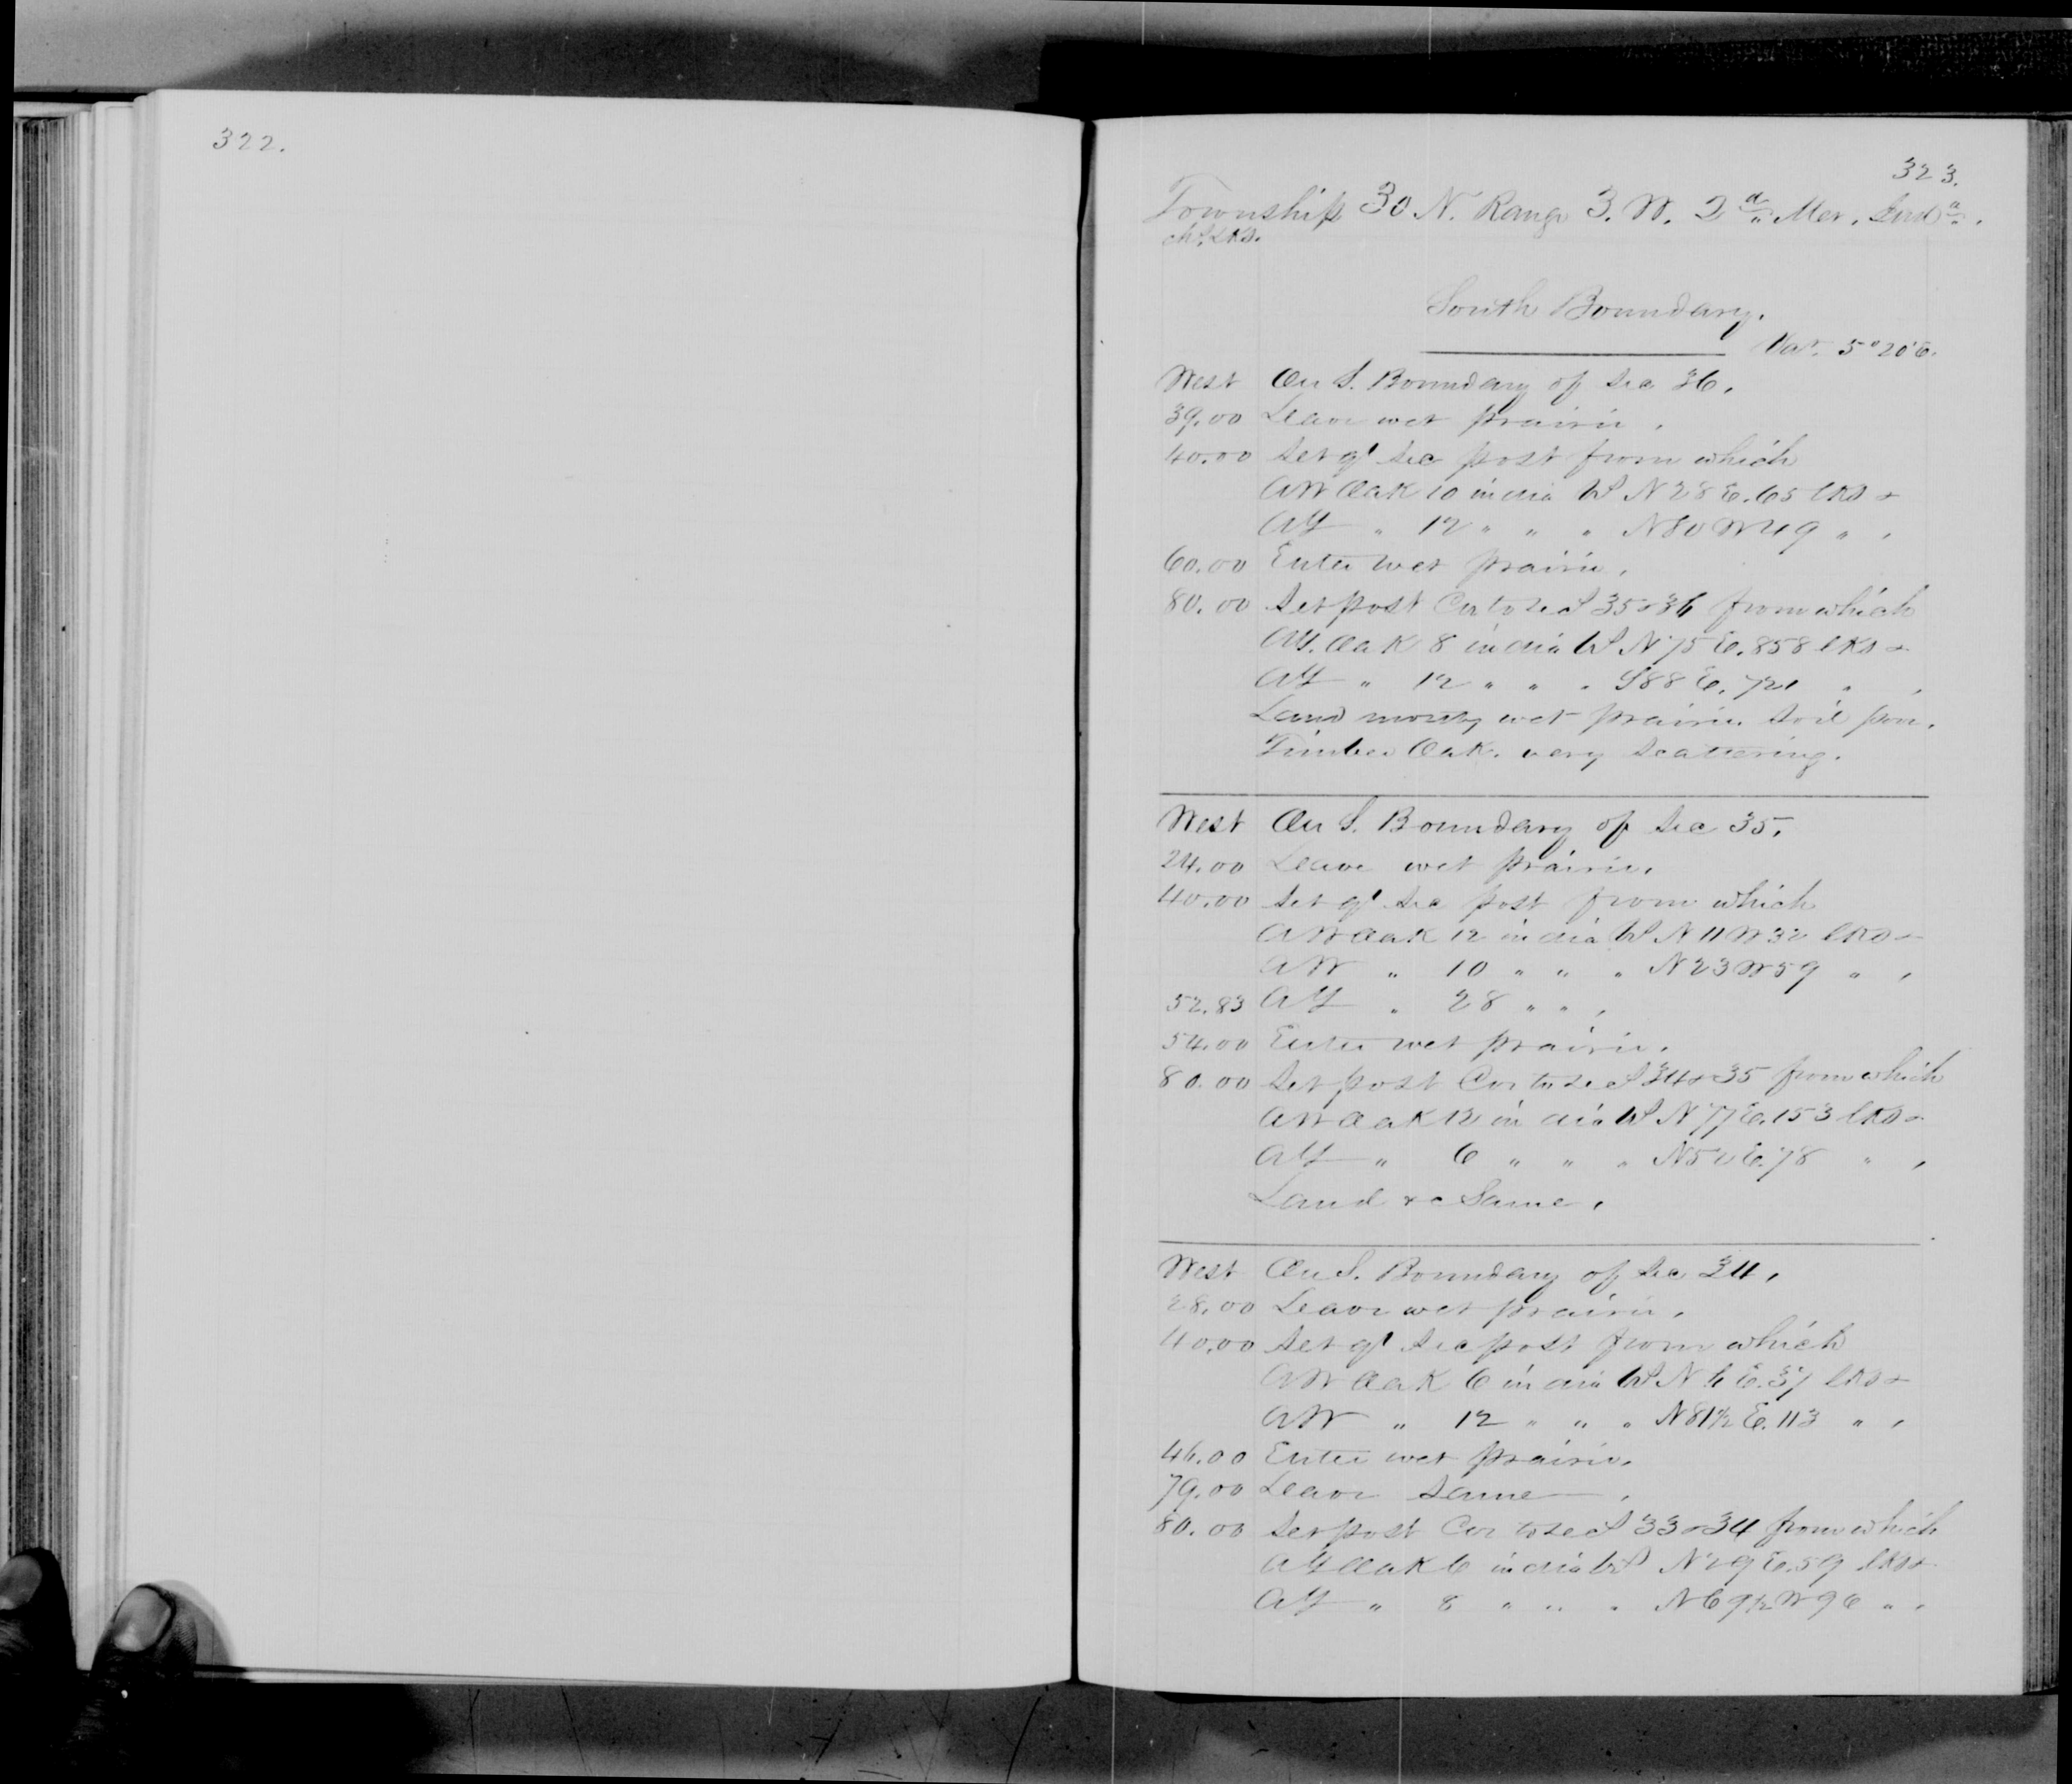 322.
323.
Township 30 N. Range 3. W. 2d Mer. Inda.
chs. lks.
South Boundary.
Var. 5° 20' E.
West On S. Boundary of Sec 36.
39.00 Leave wet prairie.
40.00 Set qr Sec post from which
A W Oak 10 in dia bs N 28 E. 65 lks &
A Y " 12 " " " N 80 W 49 " .
60.00 Enter wet prairie.
80.00 Set post Cor to secs 35 & 36 from which
A Y. Oak 8 in dia bs N 75 E. 858 lks &
A Y " 12 " " " S 88 E. 721 " .
Land mostly wet prairie. Soil poor.
Timber Oak. very Scattering.
West On S. Boundary of Sec 35.
24.00 Leave wet prairie.
40.00 Set qr Sec post from which
A W Oak 12 in dia bs N 11 W 32 lks &
A W " 10 " " " N 23 W 59 " .
52.83 A Y " 28 " " .
54.00 Enter wet prairie.
80.00 Set post Cor to secs 34 & 35 from which
A W Oak 12 in dia bs N 77 E. 153 lks &
A Y " 6 " " " N 52 E. 78 " .
Land &c Same.
West On S. Boundary of Sec 34.
28.00 Leave wet prairie.
40.00 Set qr Sec post from which
A W Oak 6 in dia bs N 6 E. 37 lks &
A W " 12 " " " N 81½ E. 113 " .
46.00 Enter wet prairie.
79.00 Leave Same .
80.00 Set post Cor to secs 33 & 34 from which
A Y Oak 6 in dia bs N 29 E. 59 lks &
A Y " 8 " " " N 69½ W 96 " .